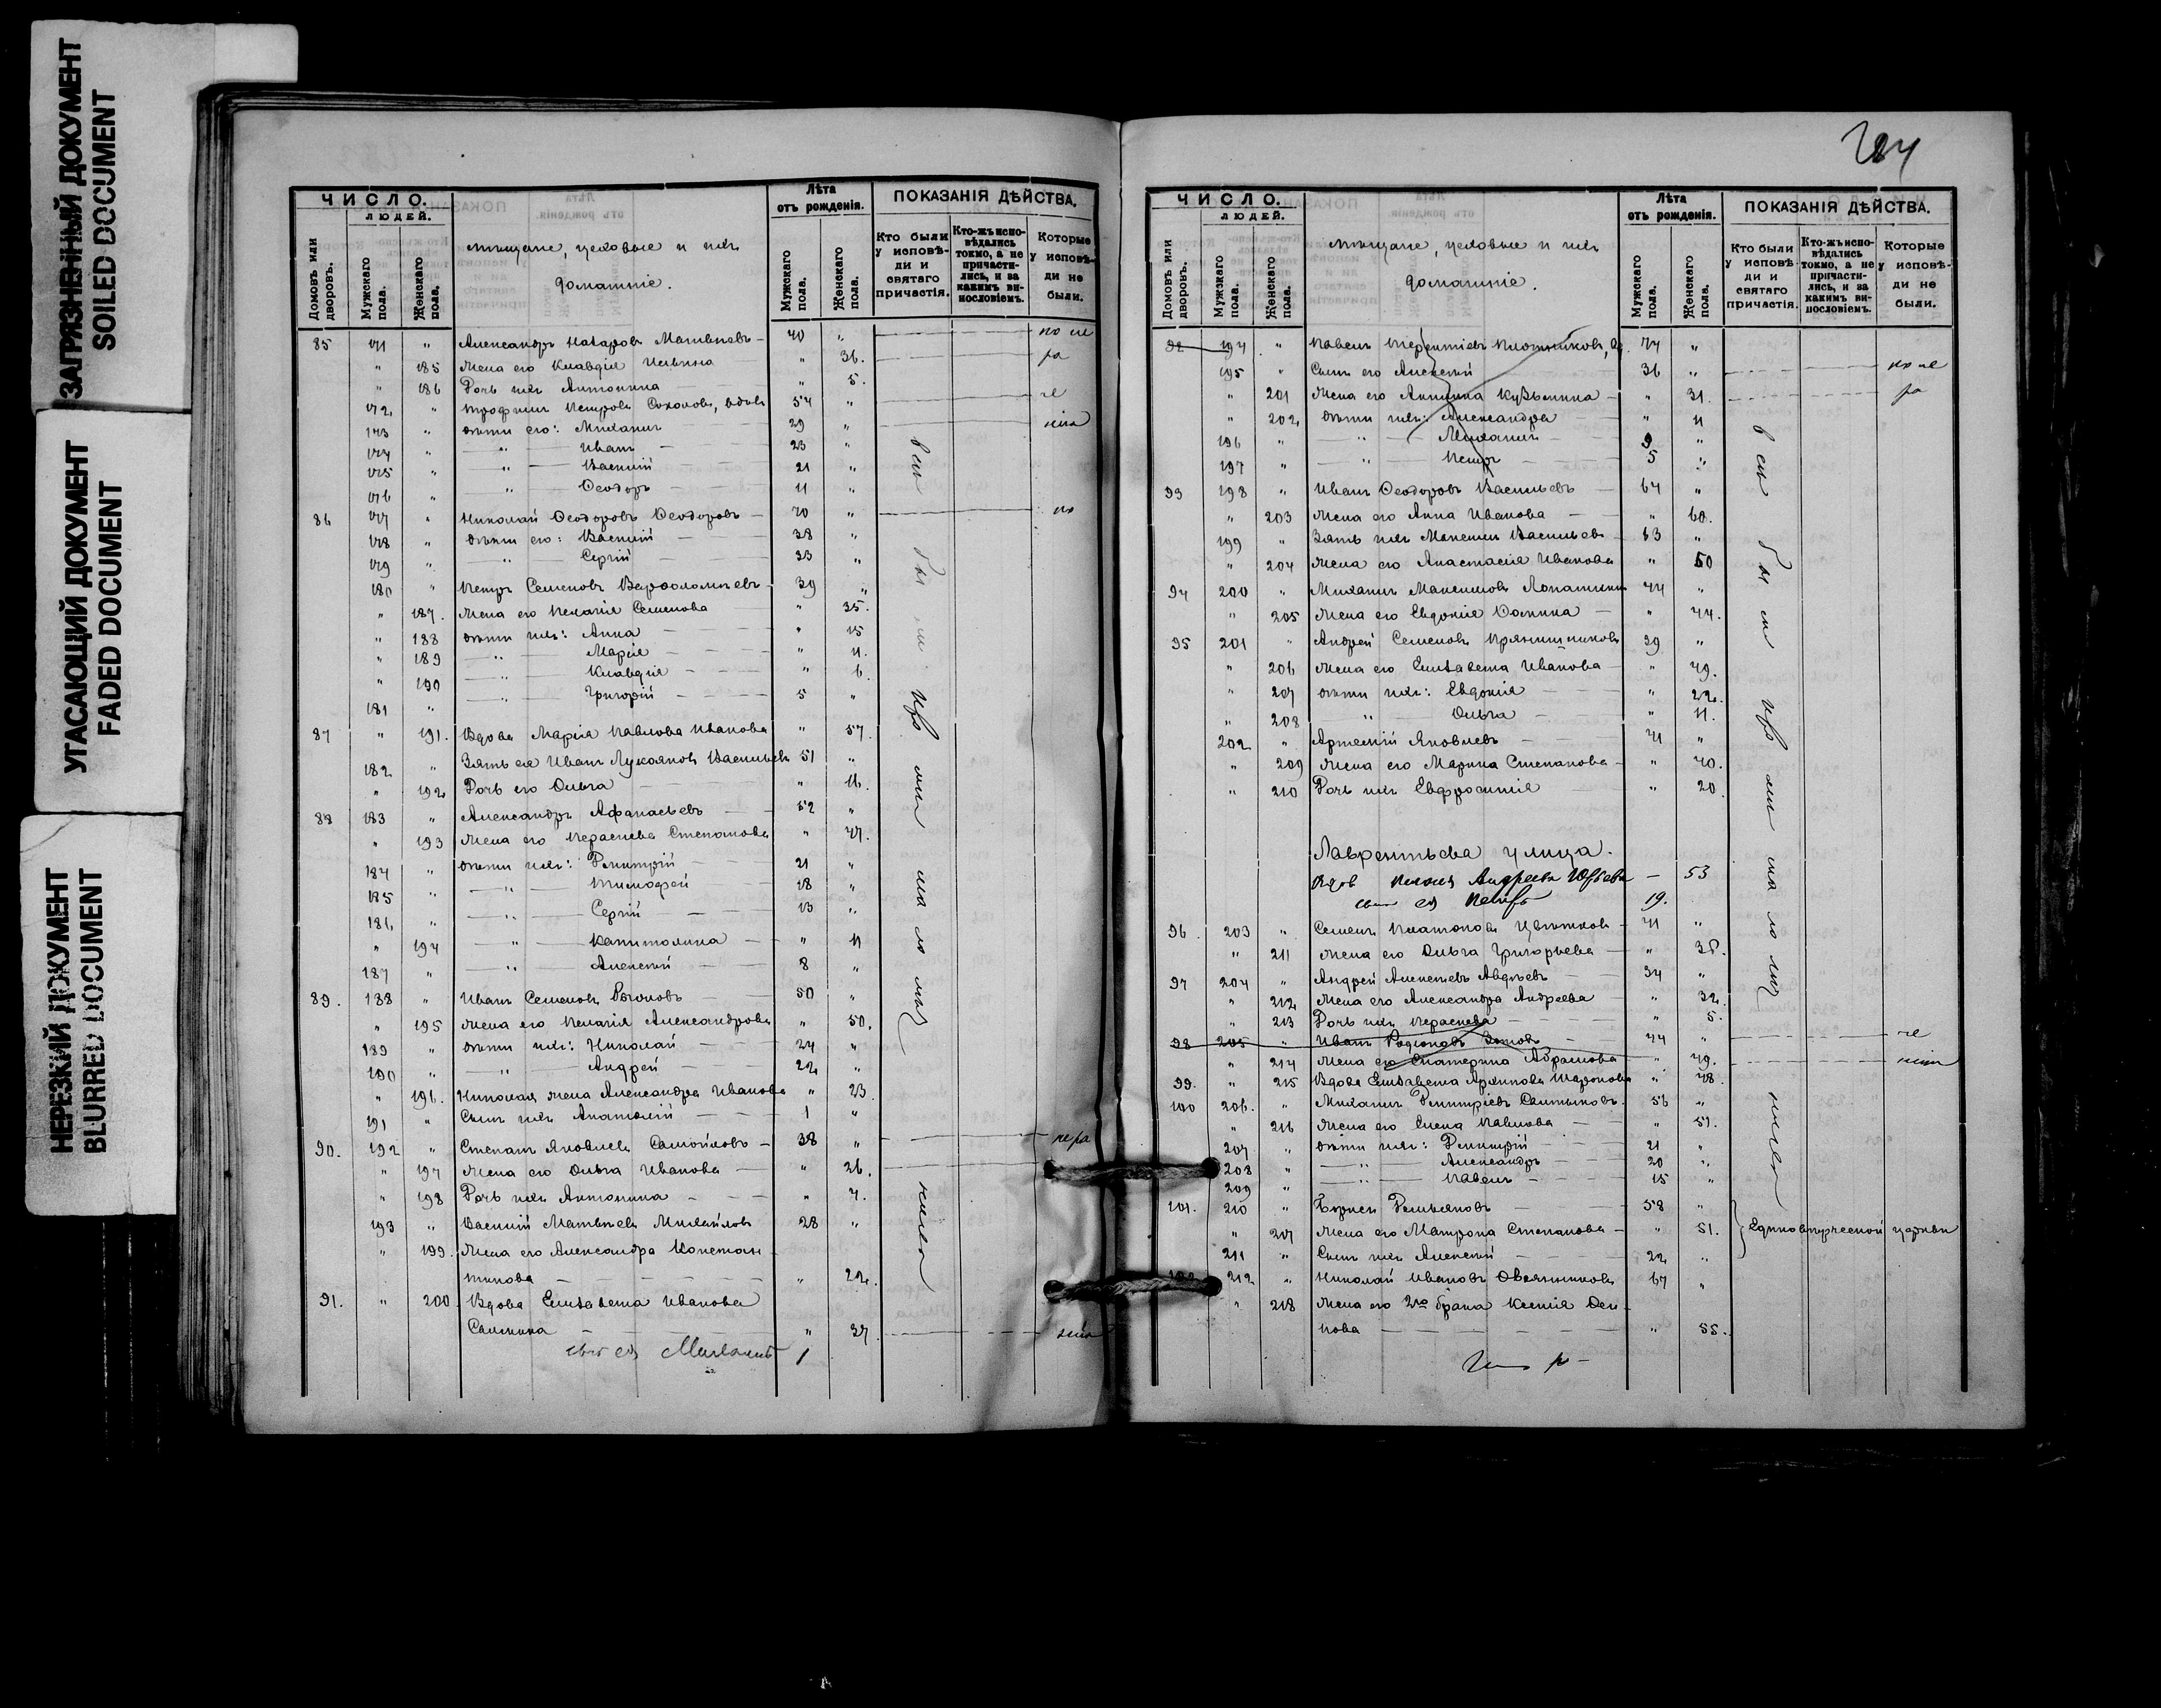 ЗАГРЯЗНЕННЫЙ ДОКУМЕНТ
SOILED DOCUMENT
УГАСАЮЩИЙ ДОКУМЕНТ
FADED DOCUMENT
НЕРЕЗКИЙ ДОКУМЕНТ
BLURRED DOCUMENT
ЧИСЛО.
ЛЮДЕЙ.
Домовъ или дворовъ.
Мужскаго пола.
Женскаго пола.
мѣщане, цеховые и ихъ
домашніе.
Лѣта
отъ рожденія.
Мужскаго пола.
Женскаго пола.
ПОКАЗАНІЯ ДѢЙСТВА.
Кто были у исповѣди и святаго причастія.
Кто-жъ исповѣдались токмо, а не причастились, и за какимъ винословіемъ.
Которые у исповѣди не были.
85 171 " Александръ Назаровъ Матвѣевъ 40 "
" 185 Жена его Клавдія Ильина " 36.
" 186 Дочь ихъ Антонина " 5.
172 " Трофимъ Петровъ Соколовъ, вдовъ 54 "
173 " дѣти его: Михаилъ 29 "
174 " Иванъ 23 "
175 " Василій 21 "
176 " Ѳеодоръ 11 "
86 177 " Николай Ѳеодоровъ Ѳеодоровъ 70 "
178 " дѣти его: Василій 38 "
179 " Сергій 33 "
180 " Петръ Семеновъ Варѳоломѣевъ 39 "
" 187. Жена его Пелагія Семенова " 35.
" 188 дѣти ихъ: Анна " 15
" 189 Марія " 11.
" 190 Клавдія " 6.
181 " Григорій 5 "
87 " 191. Вдова Марія Павлова Иванова " 57.
182 " Зять ея Иванъ Лукояновъ Васильевъ 51 "
" 192 Дочь его Ольга " 16.
88 183 " Александръ Афанасьевъ 52 "
" 193 Жена его Параскева Степанова " 47.
184 " дѣти ихъ: Димитрій 21 "
185 " Тимофей 18 "
186 " Сергій 13 "
" 194 Капитолина " 11
187 " Алексѣй 8 "
89. 188 " Иванъ Семеновъ 50 "
" 195 Жена его Пелагія Александрова " 50.
189 " дѣти ихъ: Николай 24 "
190 " Андрей 22 "
" 196. Николая жена Александра Иванова " 23.
191 " Сынъ ихъ Анатолій 1 "
90. 192 " Степанъ Яковлевъ Самойловъ 38 "
" 197 Жена его Ольга Иванова " 26.
" 198 Дочь ихъ Антонина " 7.
193 " Василій Матвѣевъ Михайловъ 28 "
" 199. Жена его Александра Констан-
тинова " 22.
91. " 200 Вдова Елизавета Иванова
" 37
Михаилъ 1
ЧИСЛО.
ЛЮДЕЙ.
Домовъ или дворовъ.
Мужскаго пола.
Женскаго пола.
мѣщане, цеховые и ихъ
домашніе.
Лѣта
отъ рожденія.
Мужскаго пола.
Женскаго пола.
ПОКАЗАНІЯ ДѢЙСТВА.
Кто были у исповѣди и святаго причастія.
Кто-жъ исповѣдались токмо, а не причастились, и за какимъ винословіемъ.
Которые у исповѣди не были.
92 194 " Павелъ Терентіевъ Плотниковъ, 74 "
195 " Сынъ его Алексѣй 36 "
" 201 Жена его Аннина Кузьмина " 31.
" 202 дѣти ихъ: Александра " 11
196 " Михаилъ 9 "
197 " Петръ 5 "
93 198 " Иванъ Ѳеодоровъ Васильевъ 64 "
" 203 Жена его Анна Иванова " 60.
199 " Зять ихъ Максимъ Васильевъ 63 "
" 204 Жена его Анастасія Иванова " 50
94 200 " Михаилъ Максимовъ Лопаткинъ 44 "
" 205 Жена его Евдокія Ѳомина " 44.
95 201 " Андрей Семеновъ Прянишниковъ 39 "
" 206 Жена его Елизавета Иванова " 49.
" 207 дѣти ихъ: Евдокія " 22.
" 208 Ольга " 11.
202 " Артемій Яковлевъ 71 "
" 209 Жена его Марина Степанова " 70.
" 210 Дочь ихъ Евфросинія " 20
Лаврентьева улица.
Вдов Андреева Юрьева — 53
ея Петръ 19.
96 203 " Семенъ Платоновъ Цвѣтковъ 41 "
" 211 Жена его Ольга Григорьева " 38.
97 204 " Андрей Алексѣевъ Авдѣевъ 34 "
" 212 Жена его Александра Андреева " 32.
" 213 Дочь ихъ Параскева " 5.
98 205 " Иванъ Родіоновъ Зотовъ 44 "
" 214 Жена его Екатерина Абрамова " 49.
99. " 215 Вдова Елизавета Архипова " 48.
100 206. " Михаилъ Димитріевъ Салтыковъ. 56 "
" 216 Жена его Елена Павлова " 51.
207 " дѣти ихъ: Димитрій 21 "
208 " Александръ 20 "
209 " Павелъ 15 "
101. 210 " Борисъ Демьяновъ 58 "
" 217 Жена его Матрона Степанова " 51. Единовѣрческой церкви
211 " Сынъ ихъ Алексѣй 22 "
102 212 " Николай Ивановъ Овсянниковъ 67 "
" 218 Жена его 2го брака Ксенія Оси-
пова " 55.